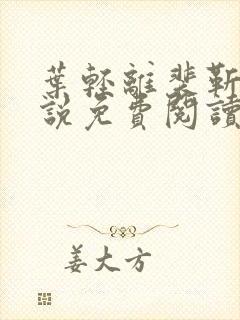 葉輕離裴靳
說免費閱讀
姜大方